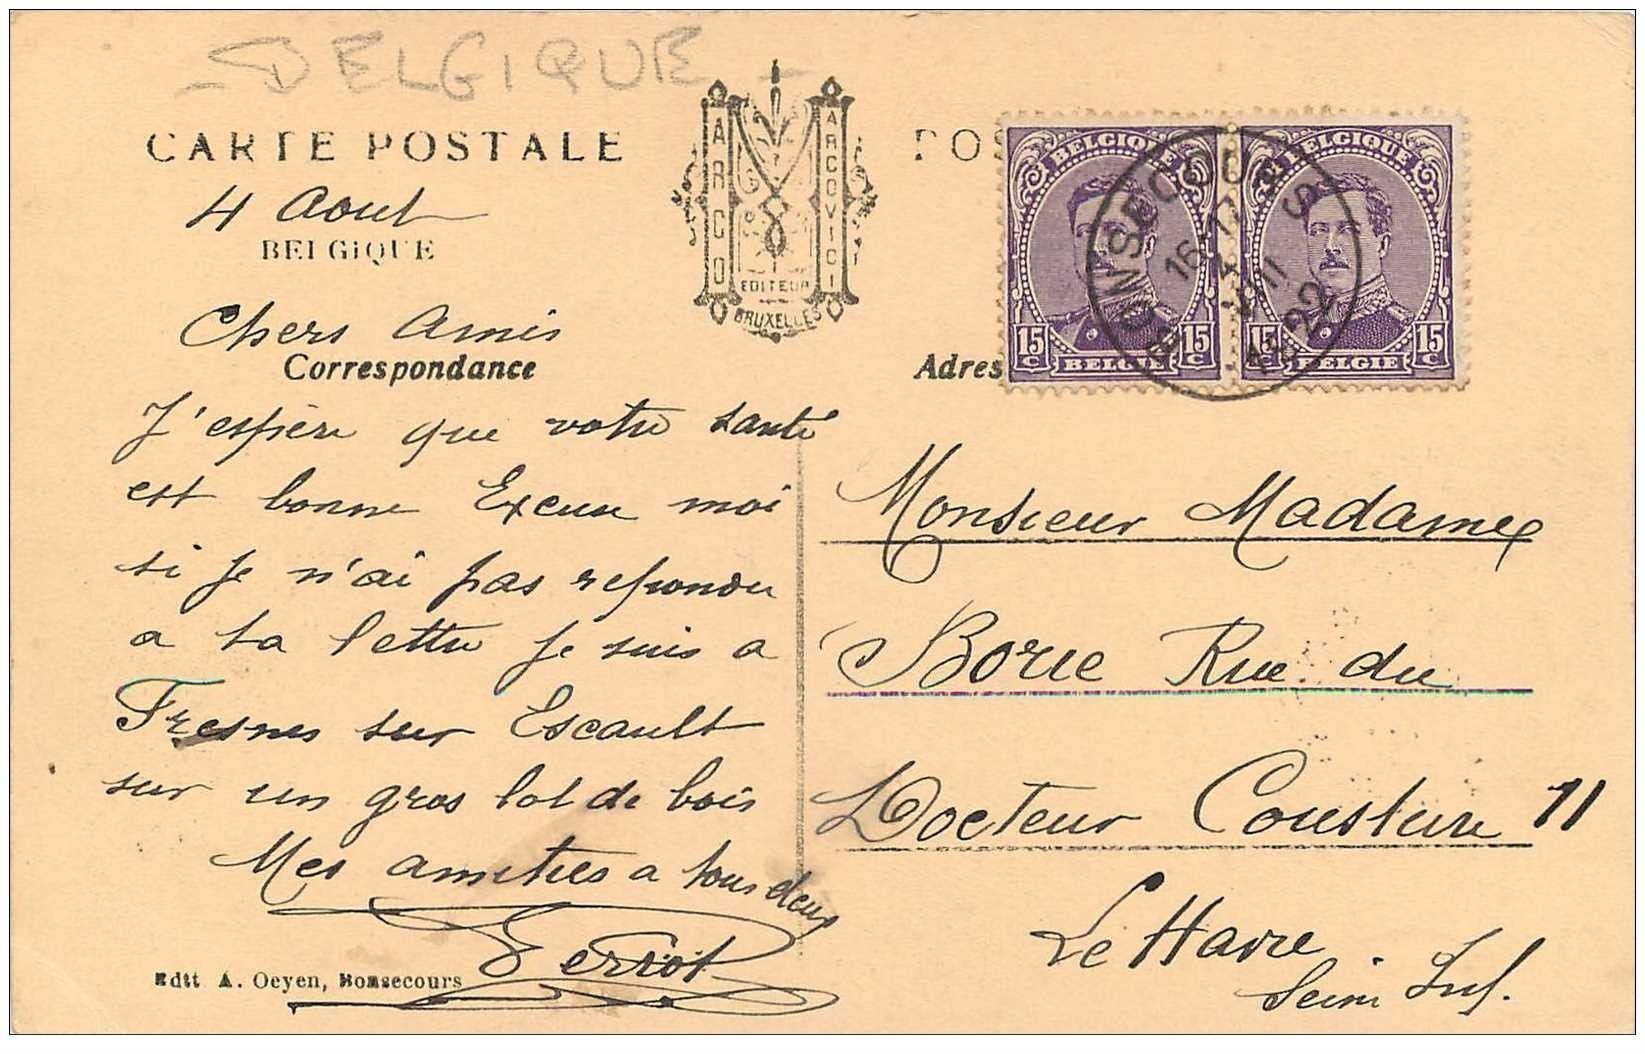 BELGIQUE
CARTE POSTALE
POS
4 Aout
BELGIQUE
ARCO
ARCOVICI
EDITEUR
BRUXELLES
BELGIQUE
BELGIQUE
15 C
15 C
BELGIE
15 C
15 C
BELGIE
BONSECOURS
16-17
4
VIII
22
Chers Amis
Correspondance
Adres
J'espère que votre santé
est bonne Excuse moi
si je n'ai pas repondu
a ta lettre je suis a
Fresnes sur Escault
sur un gros lot de bois
Mes amities a tous deux
Perrot
Edit A. Oeyen, Bonsecours
Monsieur Madame
Borie Rue du
Docteur Cousture 11
Le Havre
Seine Inf.